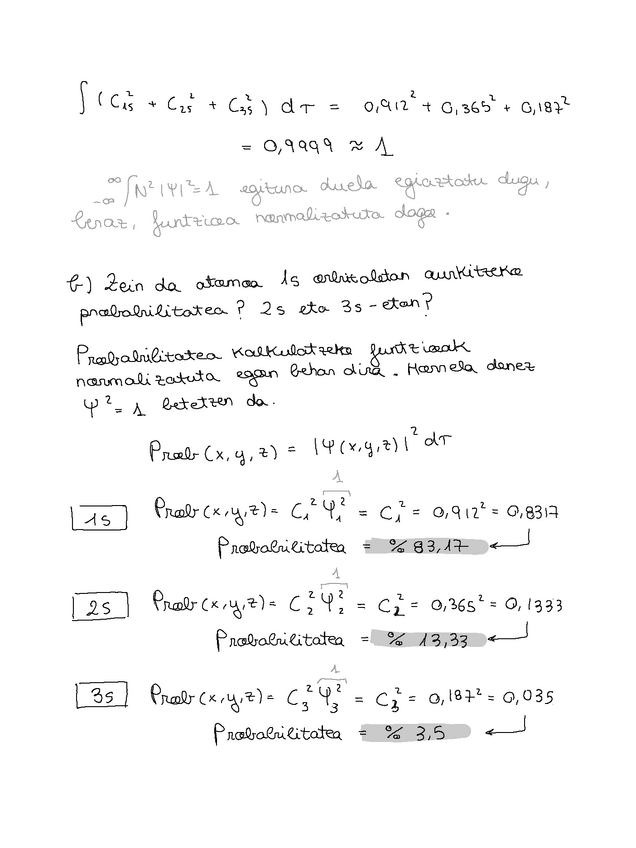 ∫ (C₁ₛ² + C₂ₛ² + C₃ₛ²) dτ = 0,912² + 0,365² + 0,187²
= 0,9999 ≈ 1
-∞ ∞∫N² |Ψ|² = 1 egitura duela egiaztatu dugu,
beraz, funtzioa normalizatuta dago.
b) Zein da atomoa 1s orbitaletan aurkitzeko
probabilitatea? 2s eta 3s-etan?
Probabilitatea kalkulatzeko funtzioak
normalizatuta egon behar dira. Horrela denez
Ψ² = 1 betetzen da.
Prob (x, y, z) = |Ψ(x, y, z)|² dτ
1
1s Prob (x, y, z) = C₁² Ψ₁² = C₁² = 0,912² = 0,8317
Probabilitatea = % 83,17
1
2s Prob (x, y, z) = C₂² Ψ₂² = C₂² = 0,365² = 0,1333
Probabilitatea = % 13,33
1
3s Prob (x, y, z) = C₃² Ψ₃² = C₃² = 0,187² = 0,035
Probabilitatea = % 3,5